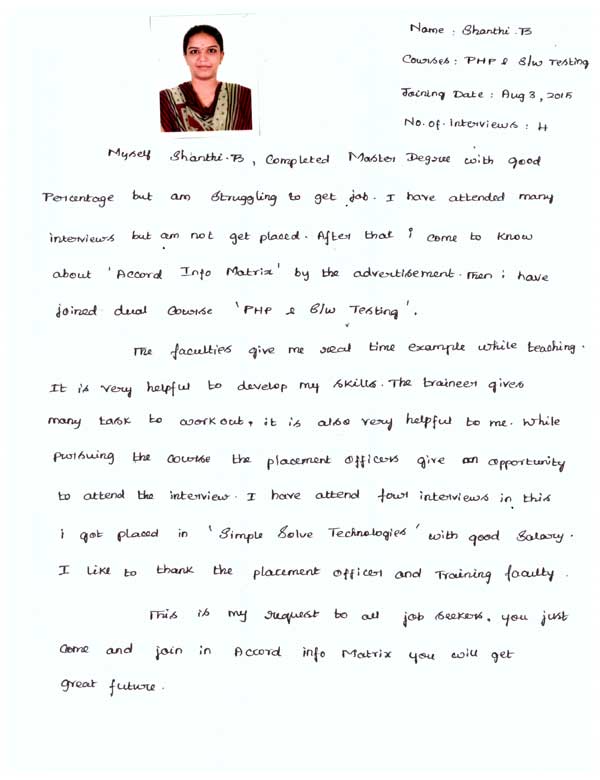 Name : Shanthi .B
Courses : PHP & S/w Testing
Joining Date : Aug 3, 2015
No. of. Interviews : 4
Myself Shanthi.B, Completed Master Degree with good
Percentage but am Struggling to get job. I have attended many
interviews but am not get placed. After that i come to know
about 'Accord Info Matrix' by the advertisement. Then i have
joined dual Course 'PHP & S/w Testing'.
The faculties give me real time example while teaching.
It is very helpful to develop my skills. The traineer gives
many task to workout, it is also very helpful to me. While
pursuing the course the placement officers give an opportunity
to attend the interview. I have attend four interviews in this
i got placed in 'Simple Solve Technologies' with good Salary.
I like to thank the placement officer and Training faculty.
This is my request to all job seekers. you just
come and join in Accord info Matrix you will get
great future.